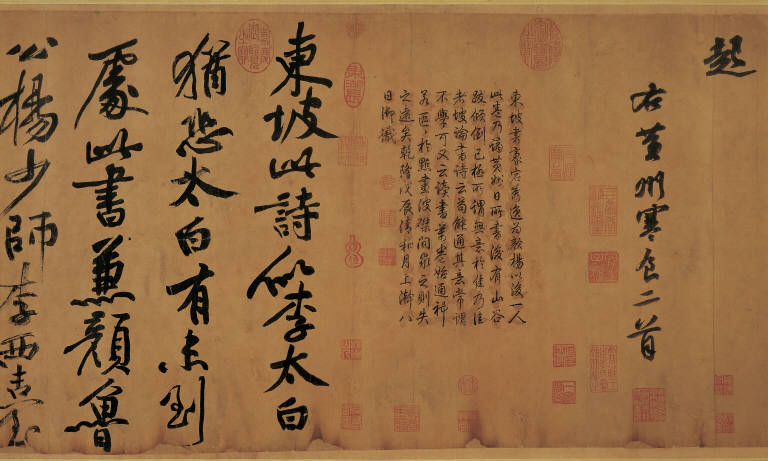 起
右黃州寒食二首
東坡書豪宕秀逸為顏楊以後一人
此卷乃謫黃州日所書後有山谷
跋傾倒已極所謂無意於佳乃佳
者坡論書詩云苟能通其意常謂
不學可又云讀書萬卷始通神
若區〻於點畫波磔間求之則失
之遠矣乾隆戊辰清和月上澣八
日御識
東坡此詩似李太白
猶恐太白有未到
處此書兼顏魯
公楊少師李西臺